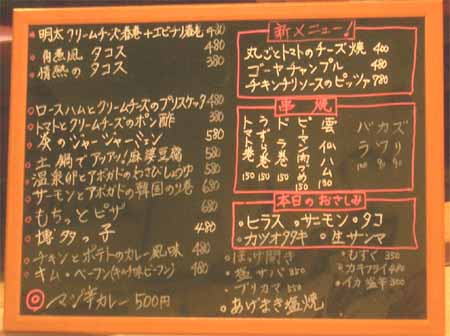 明太クリームチーズ春巻+エビナリ春巻 480
 タコス 480
情熱の タコス 380
ロースハムとクリームチーズのブリスケッタ 480
トマトとクリームチーズのポン酢 380
炎のジャージャーメン 580
土鍋でアツアツ!麻婆豆腐 580
温泉卵とアボガドのわさびしょうゆ 580
サーモンとアボガドの韓国のり巻 680
もちっとピザ 680
博多っ子 480
チキンとポテトのカレー風味 480
キム・ベーフン 480
マジ辛カレー 500円
新メニュー!
丸ごとトマトのチーズ焼 400
ゴーヤチャンプル 480
チキンチリソースのピッツァ 780
串焼
トマト巻 150
うずら巻 150
ラドド巻 150
ピーマン肉 150
雲仙ハム 150
バラ 100
カワ
ズリ
本日のおさしみ
・ヒラス ・サーモン ・タコ
・カツオタタキ ・生サンマ
ほっけ開き
塩サバ 350
ブリカマ 350
・あげまき塩焼
・もずく 350
・カキフライ 480
・イカ塩辛 350